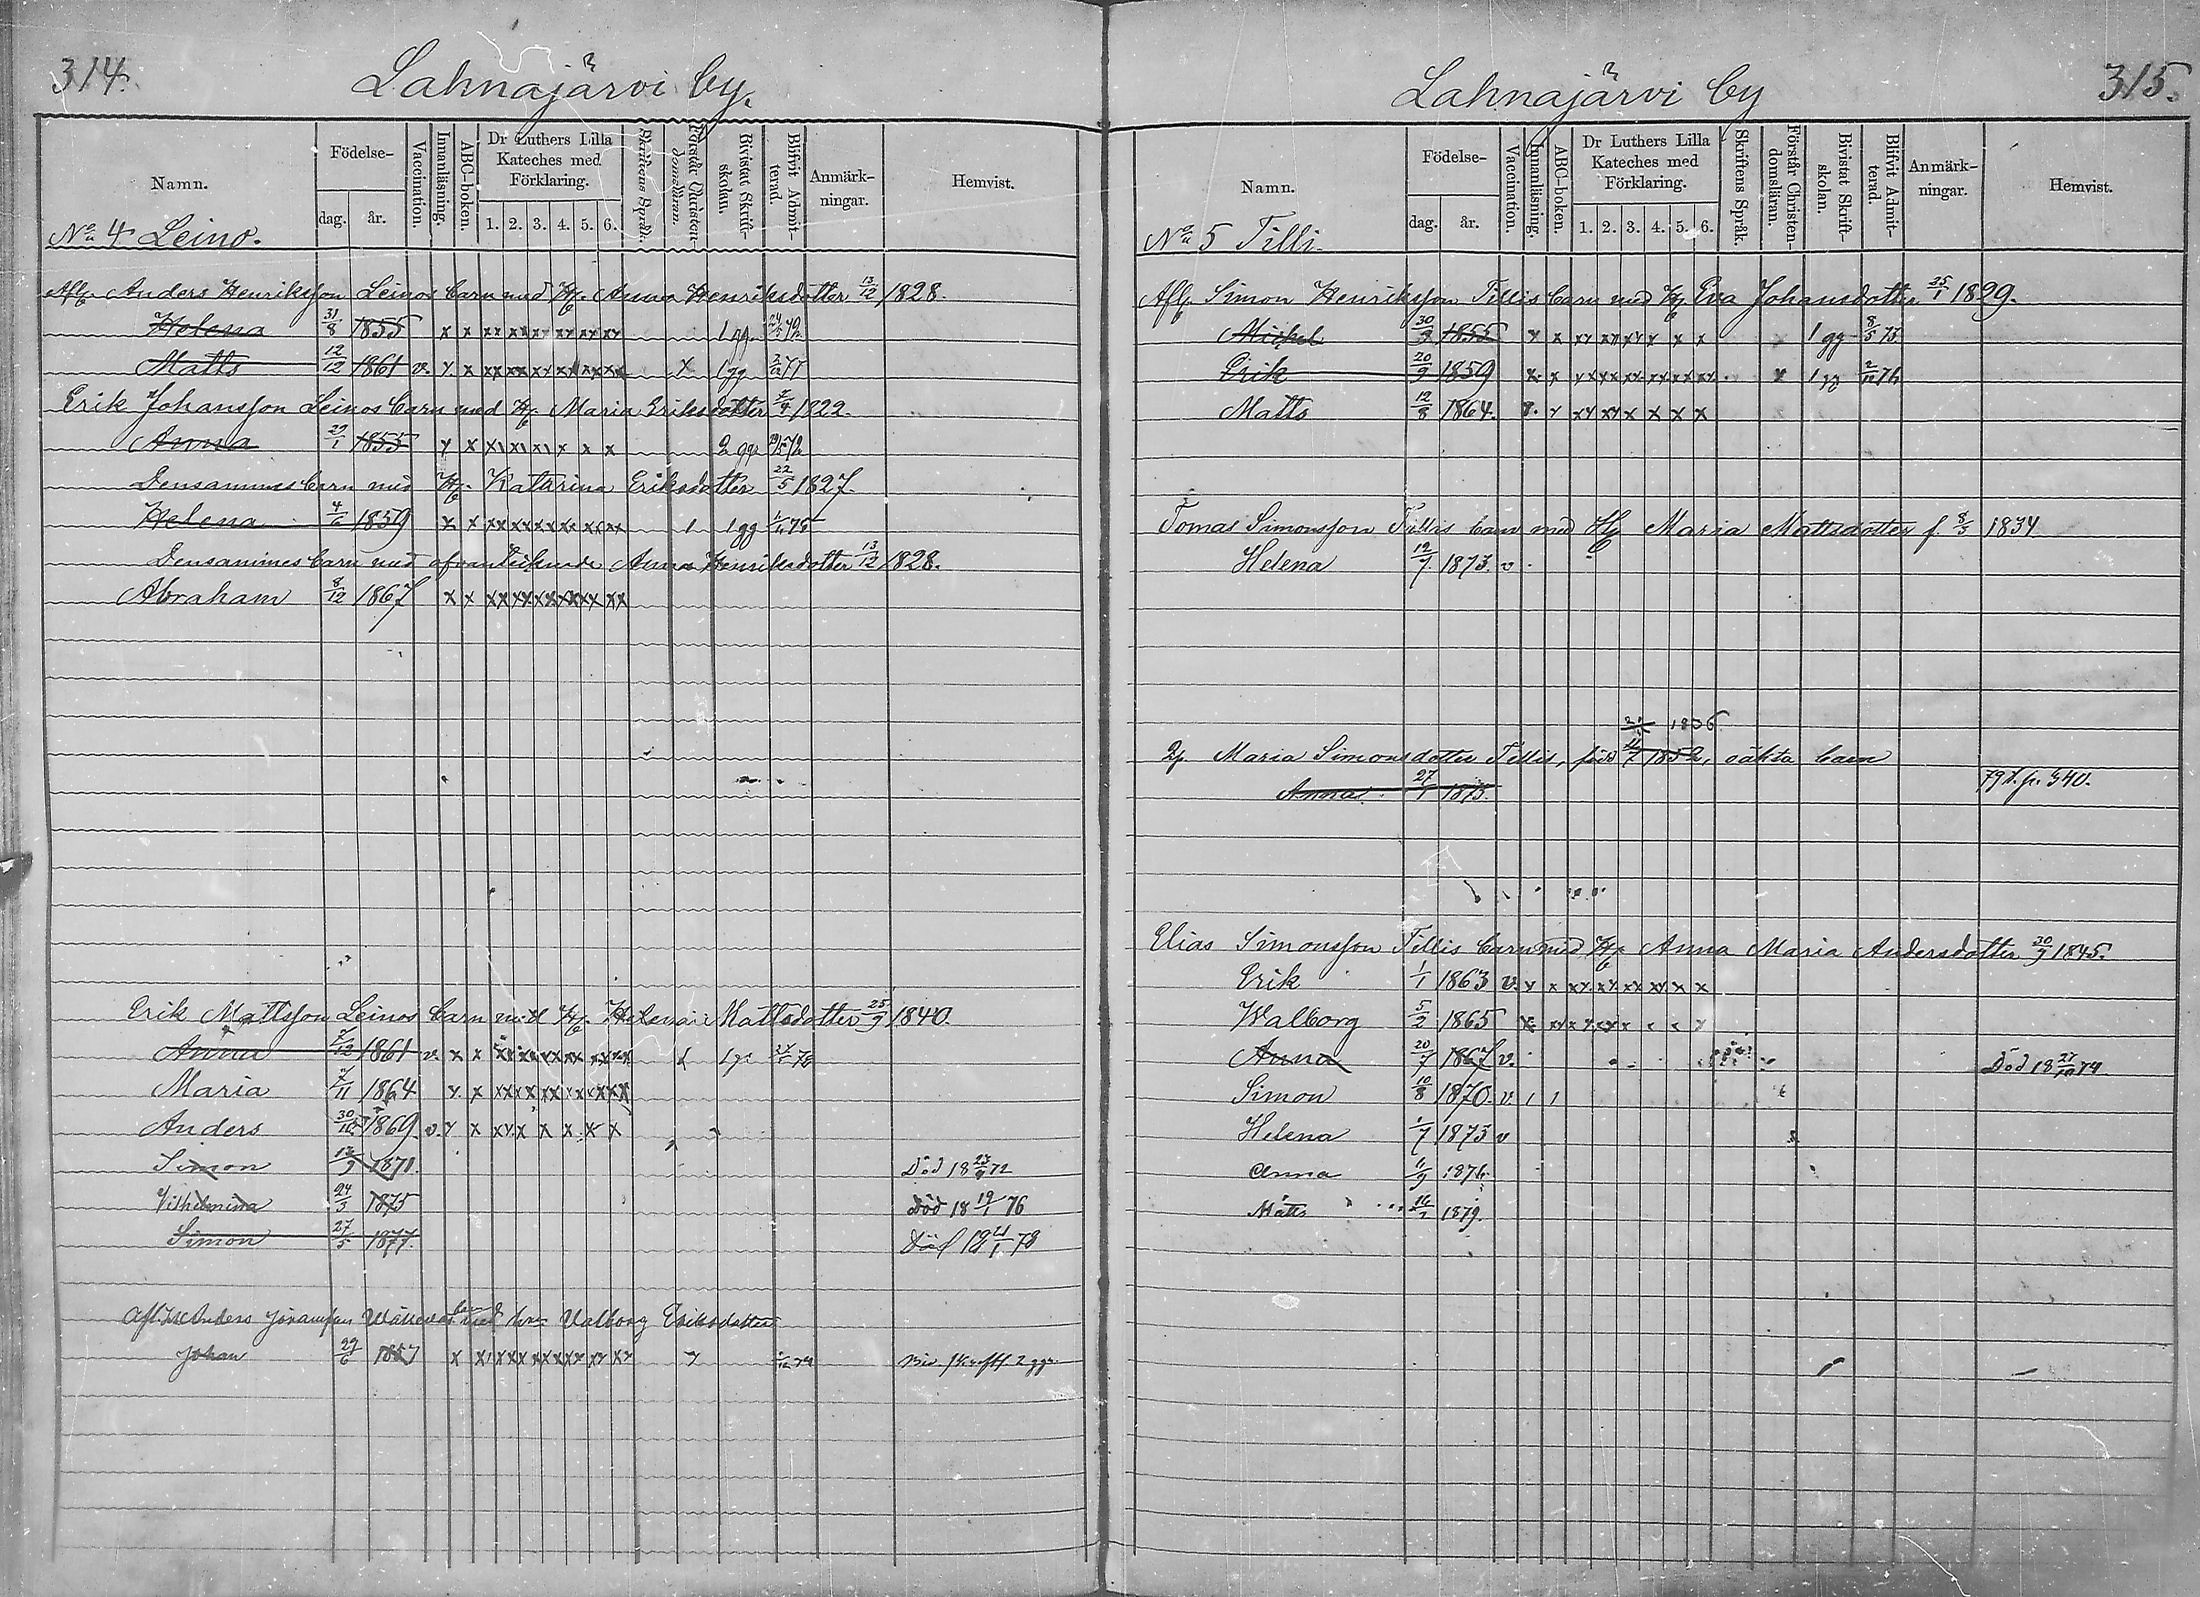 314.
Lahnajärvi by.
Namn.
Födelse-
dag.
år.
Vaccination.
Innanläsning.
ABC-boken.
Dr Luthers Lilla
Kateches med
Förklaring.
1. 2. 3. 4. 5. 6.
Skriftens Språk.
Förstår Christen-
domsläran.
Bivistat Skrift-
skolan.
Blifvit Admit-
terad.
Anmärk-
ningar.
Hemvist.
No 4 Leino.
Afl. Anders Henriksson Leinos barn med H. Anna Henriksdotter 13/12 1828.
Helena 31/8 1855 x x xx xx xx xx xx xx 1 gg.
Matts 12/12 1861 v. x x xx xx xx xx xx xx x 1 gg
Erik Johansson Leinos barn med H. Maria Eriksdotter 1822.
Anna 29/1 1855 x x x x x x x x 2 ggr
Densammes barn med H. Katarina Eriksdotter 22/5 1827.
Helena 4/6 1859 x x xx xx xx xx xx xx 1 1 gg
Densammes barn med Anna Henriksdotter 13/12 1828.
Abraham 8/12 1867 x x xx xx xx xx xx xx
Erik Mattsson Leinos barn med H. Helena Mattsdotter 25/9 1840.
Anna 1861 v. x x xx xx xx xx xx xx
Maria 7/11 1864 x x xx xx xx xx xx xx
Anders 30/10 1869 v. x x xx x x x x x
Simon 12/9 1871. Död 18 23/9 72
Vilhelmina 24/3 1875 Död 18 19/1 76
Simon 27/5 1877. Död 18 21/1 78
Afl. Anders barn med Valborg Eriksdotter
Johan 29/6 1857 2 ggr
315.
Lahnajärvi by
Namn.
Födelse-
dag.
år.
Vaccination.
Innanläsning.
ABC-boken.
Dr Luthers Lilla
Kateches med
Förklaring.
1. 2. 3. 4. 5. 6.
Skriftens Språk.
Förstår Christen-
domsläran.
Bivistat Skrift-
skolan.
Blifvit Admit-
terad.
Anmärk-
ningar.
Hemvist.
No 5 Tilli.
Afl. Simon Henriksson Tillis barn med H. Eva Johansdotter 25/1 1829.
Mickel 30/9 1855 x x xx xx xx x x x x 1 gg 8/5 75
Erik 20/9 1859 x x xx xx xx xx xx xx x 1 gg
Matts 12/8 1864. x xx xx x x x x
Tomas Simonsson Tillis barn med H. Maria Mattsdotter f. 8/3 1834
Helena 12/7 1873. v.
1856
Maria Simonsdotter Tillis, född 1852, oäkta barn
Anna 27/1 1875. p. 340.
Elias Simonsson Tillis barn med H. Anna Maria Andersdotter 30/9 1845.
Erik 1/1 1863 v. x x xx xx xx xx x x
Walborg 5/2 1865
Anna 20/7 1867 v. Död 18 27/10 74
Simon 10/8 1870. v. 1 1
Helena 1873 v
Anna 1876.
Matts 1879.